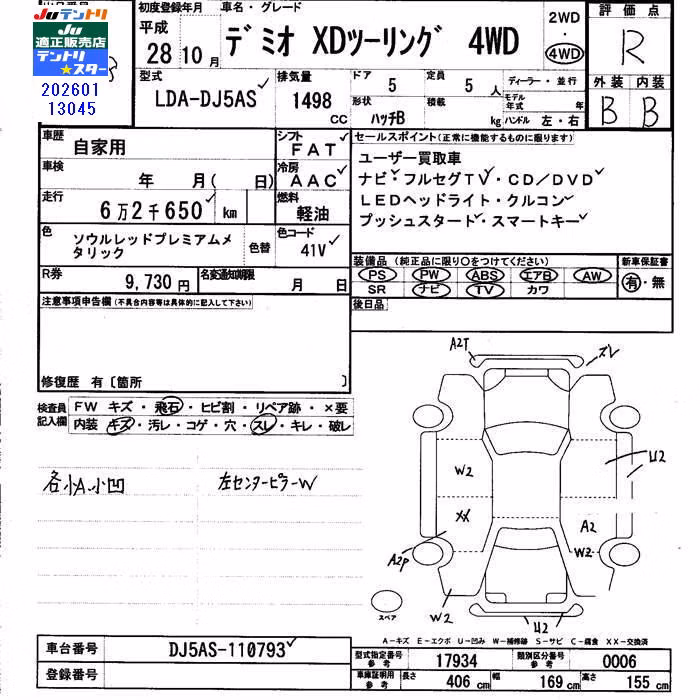 Juテントリ
Ju
適正販売店
テントリ
★スター
202601
13045
初度登録年月
平成
28年10月
車名・グレード
デミオ XDツーリング 4WD
2WD
・
4WD
評価点
R
型式
LDA-DJ5AS
排気量
1498
CC
ドア
5
定員
5人
ディーラー・並行
形状
ハッチB
積載
kg
モデル年式
年
ハンドル 左・右
外装 内装
B B
車歴
自家用
シフト
FAT
車検
年 月( 日)
冷房
AAC
走行
6万2千650 km
燃料
軽油
色
ソウルレッドプレミアムメタリック
色替
色コード
41V
R券
9,730円
名変通知期限
月 日
セールスポイント(正常に機能するものに限ります)
ユーザー買取車
ナビ・フルセグTV・CD/DVD
LEDヘッドライト・クルコン
プッシュスタート・スマートキー
装備品(純正品に限り○をつけてください)
PS PW ABS エアB AW
SR ナビ TV カワ
新車保証書
有・無
後日品
注意事項申告欄(不具合内容等は具体的に記入して下さい)
修復歴 有〔箇所 〕
検査員記入欄
FW キズ・飛石・ヒビ割・リペア跡・×要
内装 キズ・汚レ・コゲ・穴・スレ・キレ・破レ
各小A小凹
左センターピラーW
A2T
ズレ
W2
U2
XX
A2
W2
A2P
W2
U2
スペア
A-キズ E-エクボ U-凹み W-補修跡 S-サビ C-腐食 XX-交換済
車台番号
DJ5AS-110793
登録番号
型式指定番号
参考
17934
類別区分番号
参考
0006
車庫証明用
参考
長さ
406 cm
幅
169 cm
高さ
155 cm